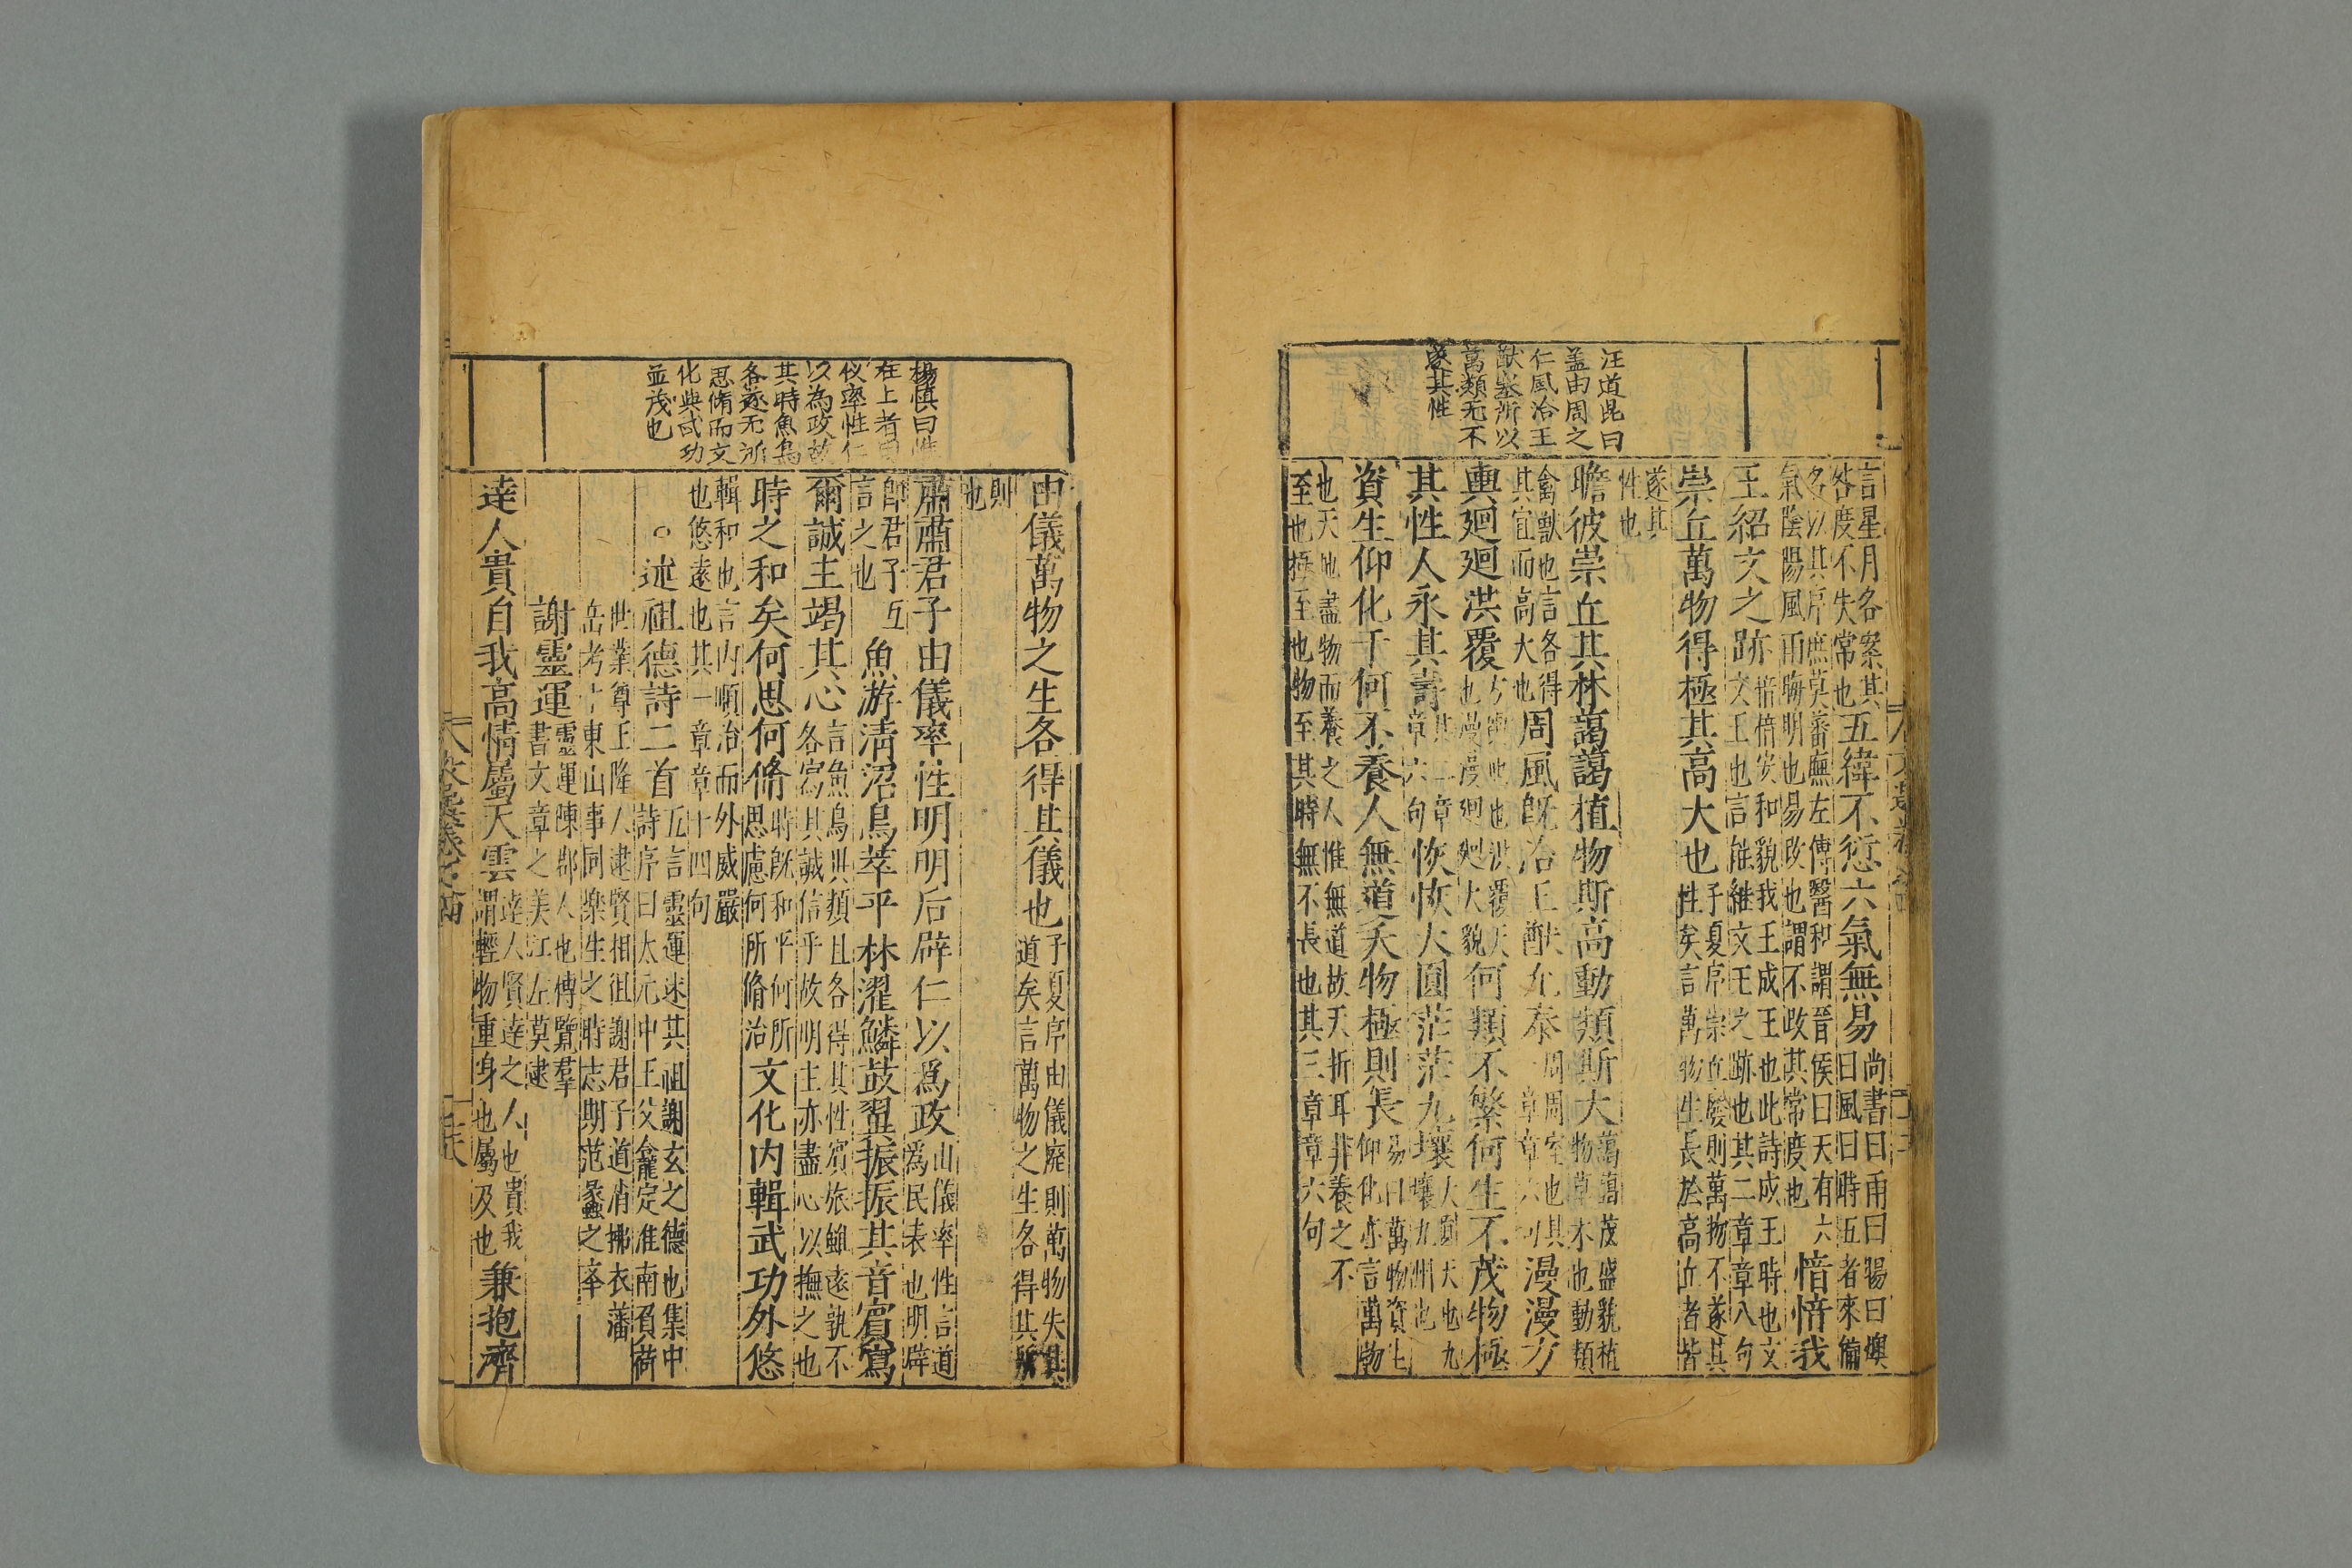 汪道昆曰
盖由周之
仁風洽王
猷塞所以
萬類无不
遂其性
言星月各案其
咎度不失常也
五緯不愆六氣無易
尚書曰雨曰暘曰燠
曰風曰時五者來備
各以其序庶莫蕃廡左傳醫和謂晉侯曰天有六
氣陰陽風雨晦明也易改也謂不改其常度也
愔愔我
王紹文之跡
愔愔安和貌我王成王也此詩成王時也文
文王也言能繼文王之跡也其二章章八句
崇丘萬物得極其高大也
子夏序崇丘廢則萬物不遂其
性矣言萬物生長於高丘者皆
遂其
性也
瞻彼崇丘其林藹藹植物斯高動類斯大
藹藹茂盛貌植
物草木也動類
禽獸也言各得
其宜而高大也
周風旣洽王猷允泰
周周室也其
一章章六句
漫漫方
輿廻廻洪覆
方輿地也洪覆天
也漫漫廻廻大貌
何類不繁何生不茂物極
其性人永其壽
其二章
章六句
恢恢大圓茫茫九壤
大圓天也九
壤九州也
資生仰化于何不養人無道夭物極則長
易曰萬物資生
仰化亦言萬物
也天地盡物而養之人惟無道故夭折耳非養之不
至也極至也物至其時無不長也其三章章六句
楊慎曰性
在上者由
仪率性仁
以為政故
其時魚鳥
各遂无所
思脩而文
化與武功
並茂也
由儀萬物之生各得其儀也
子夏序由儀廢則萬物失其
道矣言萬物之生各得其所
則
也
肅肅君子由儀率性明明后辟仁以爲政
由儀率性言道
爲民表也明辟
卽君子互
言之也
魚游清沼鳥萃平林濯鱗鼓翼振振其音賓寫
爾誠主竭其心
言魚鳥與類且各得其性賓旅雖遠孰不
各寫其誠信乎故明主亦盡心以撫之也
時之和矣何思何脩
時旣和平何所
思慮何所脩治
文化内輯武功外悠
輯和也言内順治而外威嚴
也悠遠也其一章章十四句
。述祖德詩二首
五言靈運述其祖謝玄之德也集中
詩序曰太元中王父龕定淮南負荷
世業尊主隆人逮賢相徂謝君子道消拂衣藩
岳考卜東山事同樂生之時志期范蠡之舉
謝靈運
靈運陳郡人也傳覽羣
書文章之美江左莫逮
達人貴自我高情屬天雲
達人賢達之人也貴我
謂輕物重身也屬及也
兼抱濟